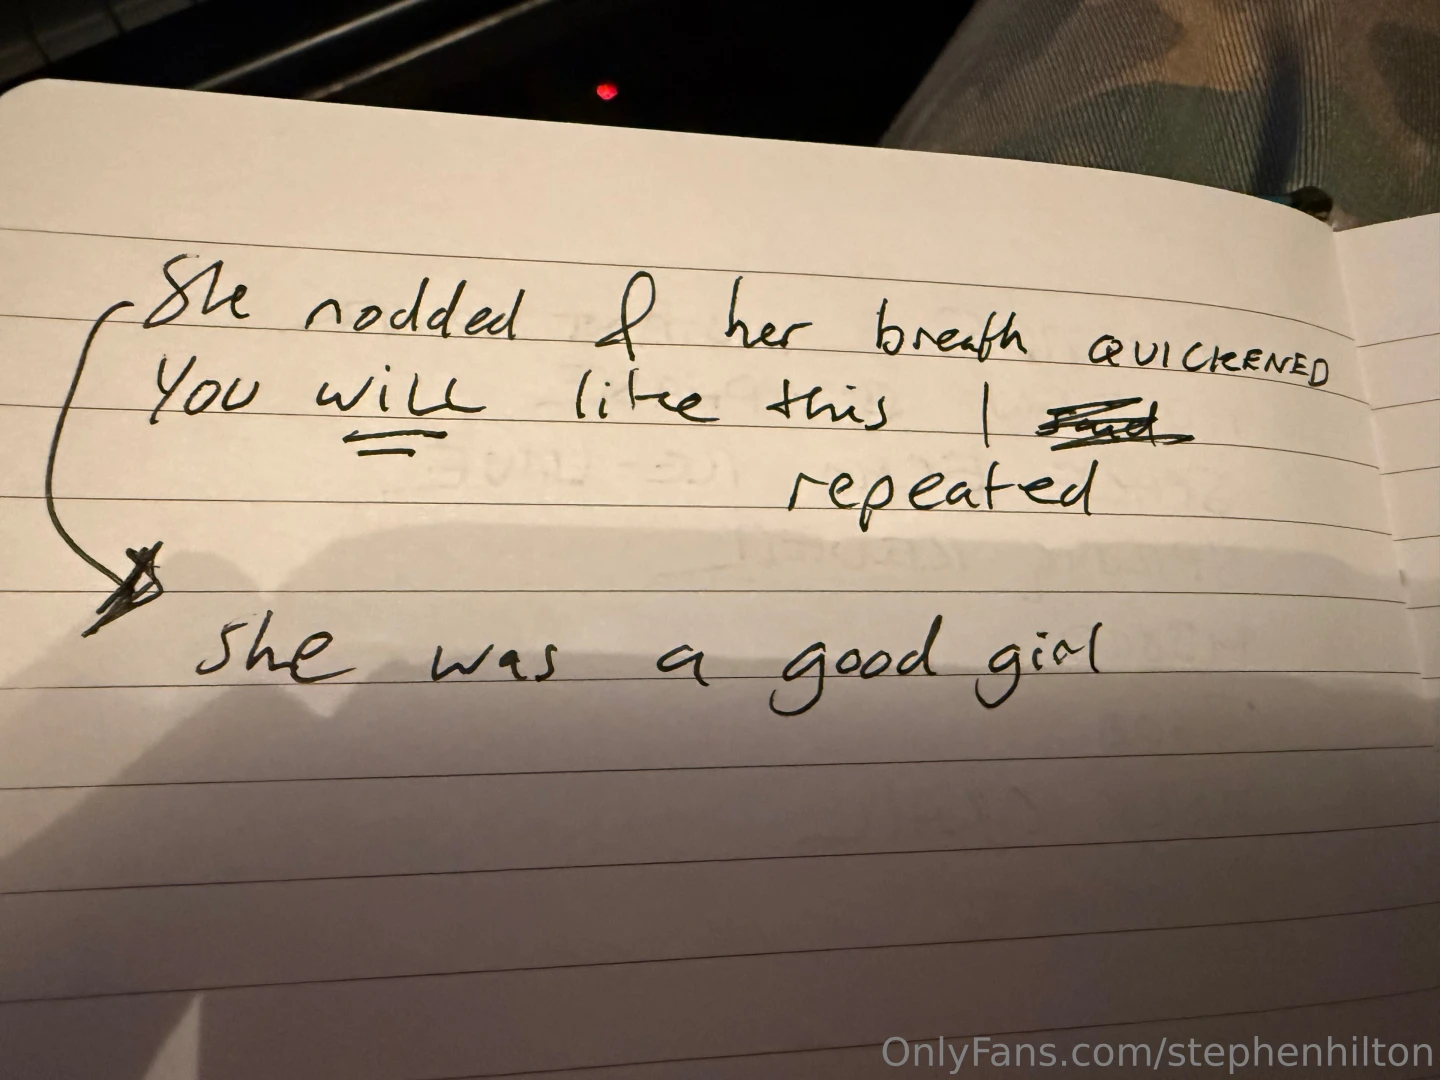 She nodded & her breath QUICKENED
You will like this I said
repeated
she was a good girl
OnlyFans.com/stephenhilton